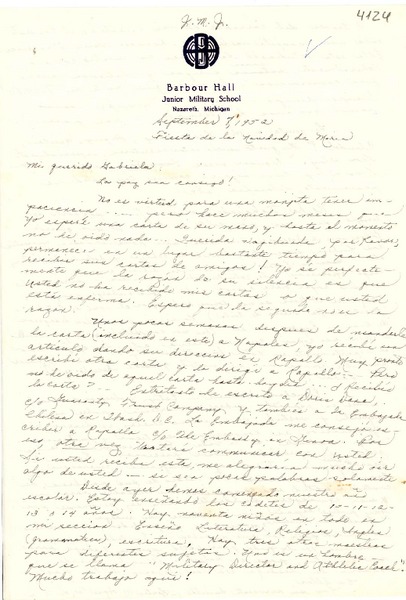 J. M. J.
4124
Barbour Hall
Junior Military School
Nazareth, Michigan
September 7, 1952
Fiesta de la Navidad de Maria
Mi querida Gabriela:
La paz sea consigo!
No es virtud para una monjita tener im-
paciencia ..... pero hace muchos meses que
yo esperé una carta de su , y hasta el momento
no he oido nada... Querida , por favor,
permanezca en un lugar bastante tiempo para
recibir sus cartas de amigos! Yo se perfecta-
mente que la razón de su silencio es que
usted no ha recibido mis cartas o que usted
está enferma. Espero que la segunda no es la
razón.
Unas pocas semanas despues de mandarle
la carta (incluido en este) a Napoles, yo recibí un
articulo dando su dirección en Rapallo. Muy pronto
escribí otra carta y la dirigí a Rapallo. Pero
no he oido de aquel carta hasta hoy día... ¿Recibió
la carta? - Entretanto he escrito a Doris Dana,
c/o Guaranty Trust Company, y tambien a la Embajada
Chilena en Wash. D.C. La Embajada me consejó es-
cribir a Rapallo c/o the Embassy, en Genoa. Por
eso, otra vez, tratará comunicar con usted.
Si usted reciba este, me alegraría mucho oir
algo de usted - se sea pocas palabras solamente.
Desde ayer hemos comenzado nuestro año
escolar. Estoy enseñando los cadetes de 10-11-12-
13 a 14 años. Hay noventa niños en todo en
mi sección. Enseño Literatura, Religion, Ingles
(grammatica), escritura. Hay tres otras maestras
para diferentes sujetos. Uno es un hombre
que se llama "Military Director and Athletic Coach".
Mucho trabajo aqui!